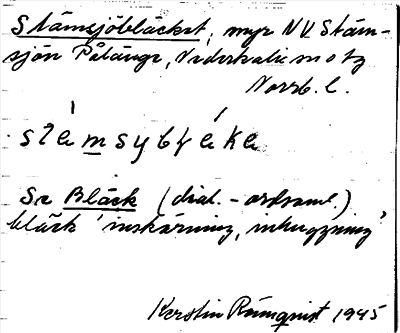 Stämsjöbläcket, myr NV Stäm-
sjön Pålänge, Nederkalix sn o tg
Norrb. l.
stémsybléke
Se Bläck (dial.-ordsaml.)
bläck 'inskärning, inhuggning'
Kerstin Rönnquist 1945